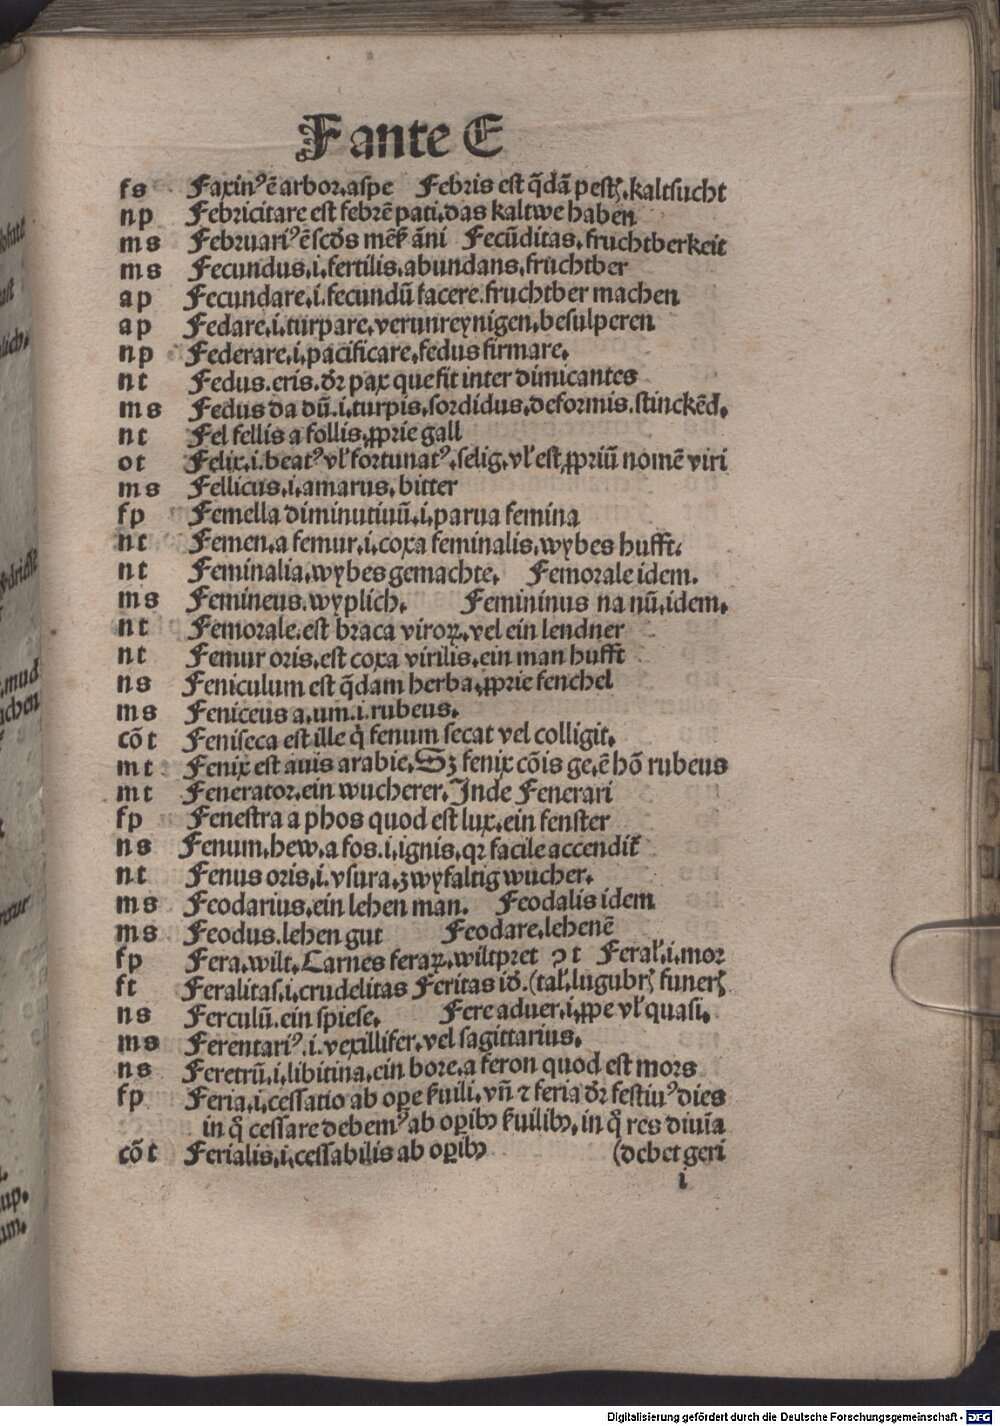 F ante E
fs Faxinꝰ ē arbor.aſpe Febris eſt q̄dā peſtꝭ.kaltſucht
np Febricitare eſt febrē pati.das kaltwe haben
ms Februariꝰ ē ſcd̓s mēẜ āni Fecūditas.fruchtberkeit
ms Fecundus.i.fertilis.abundans.fruchtber
ap Fecundare.i.fecundū facere.fruchtber machen
ap Fedare.i.turpare.verunreynigen.beſulperen
np Federare.i.pacificare.fedus firmare.
nt Fedus.eris.dr̄ pax que fit inter dimicantes
ms Fedus da dū.i.turpis.ſordidus.deformis.ſtinckēd.
nt Fel fellis a follis.ꝓprie gall
ot Felix.i.beatꝰ vl̓ fortunatꝰ.ſelig.vl̓ eſt ꝓpriū nomē viri
ms Fellicus.i.amarus.bitter
fp Femella diminutiuū.i.parua femina
nt Femen.a femur.i.coxa feminalis.wybes hufft.
nt Feminalia.wybes gemachte. Femorale idem.
ms Femineus.wyplich. Femininus na nū.idem.
nt Femorale.eſt braca viroꝝ.vel ein lendner
nt Femur oris.eſt coxa virilis.ein man hufft
ns Feniculum eſt q̄dam herba.ꝓprie fenchel
ms Feniceus a.um.i.rubeus.
cōt Feniſeca eſt ille q̇ fenum ſecat vel colligit.
mt Fenix eſt auis arabie.Sꝫ fenix cōis ge.ē hō rubeus
mt Fenerator.ein wucherer.Inde Fenerari
fp Feneſtra a phos quod eſt lux.ein fenſter
ns Fenum.hew.a fos.i.ignis.qꝛ facile accendit̄
nt Fenus oris.i.vſura.zwyfaltig wucher.
ms Feodarius.ein lehen man. Feodalis idem
ms Feodus.lehen gut Feodare.lehenē
fp Fera.wilt.Carnes feraꝝ.wiltpret ꝛ t Feral̓.i.mor
ft Feralitaſ.i.crudelitas Feritas id̓.(tal̓.lugubrꝭ funerꝭ
ns Ferculū.ein ſpieſe. Fere aduer.i.ꝓpe vl̓ quaſi.
ms Ferentariꝰ.i.vexillifer.vel ſagittarius.
ns Feretrū.i.libitina.ein bore.a feron quod eſt mors
fp Feria.i.ceſſatio ab oꝑe ẜuili.vn̄ ⁊ feria dr̄ feſtiuꝰ dies
in q̄ ceſſare debemꝰ ab oꝑibꝰ ẜuilibꝰ.in q̄ res diuīa
cōt Ferialis.i.ceſſabilis ab oꝑibꝰ (debet geri
i
Digitalisierung gefördert durch die Deutsche Forschungsgemeinschaft - DFG